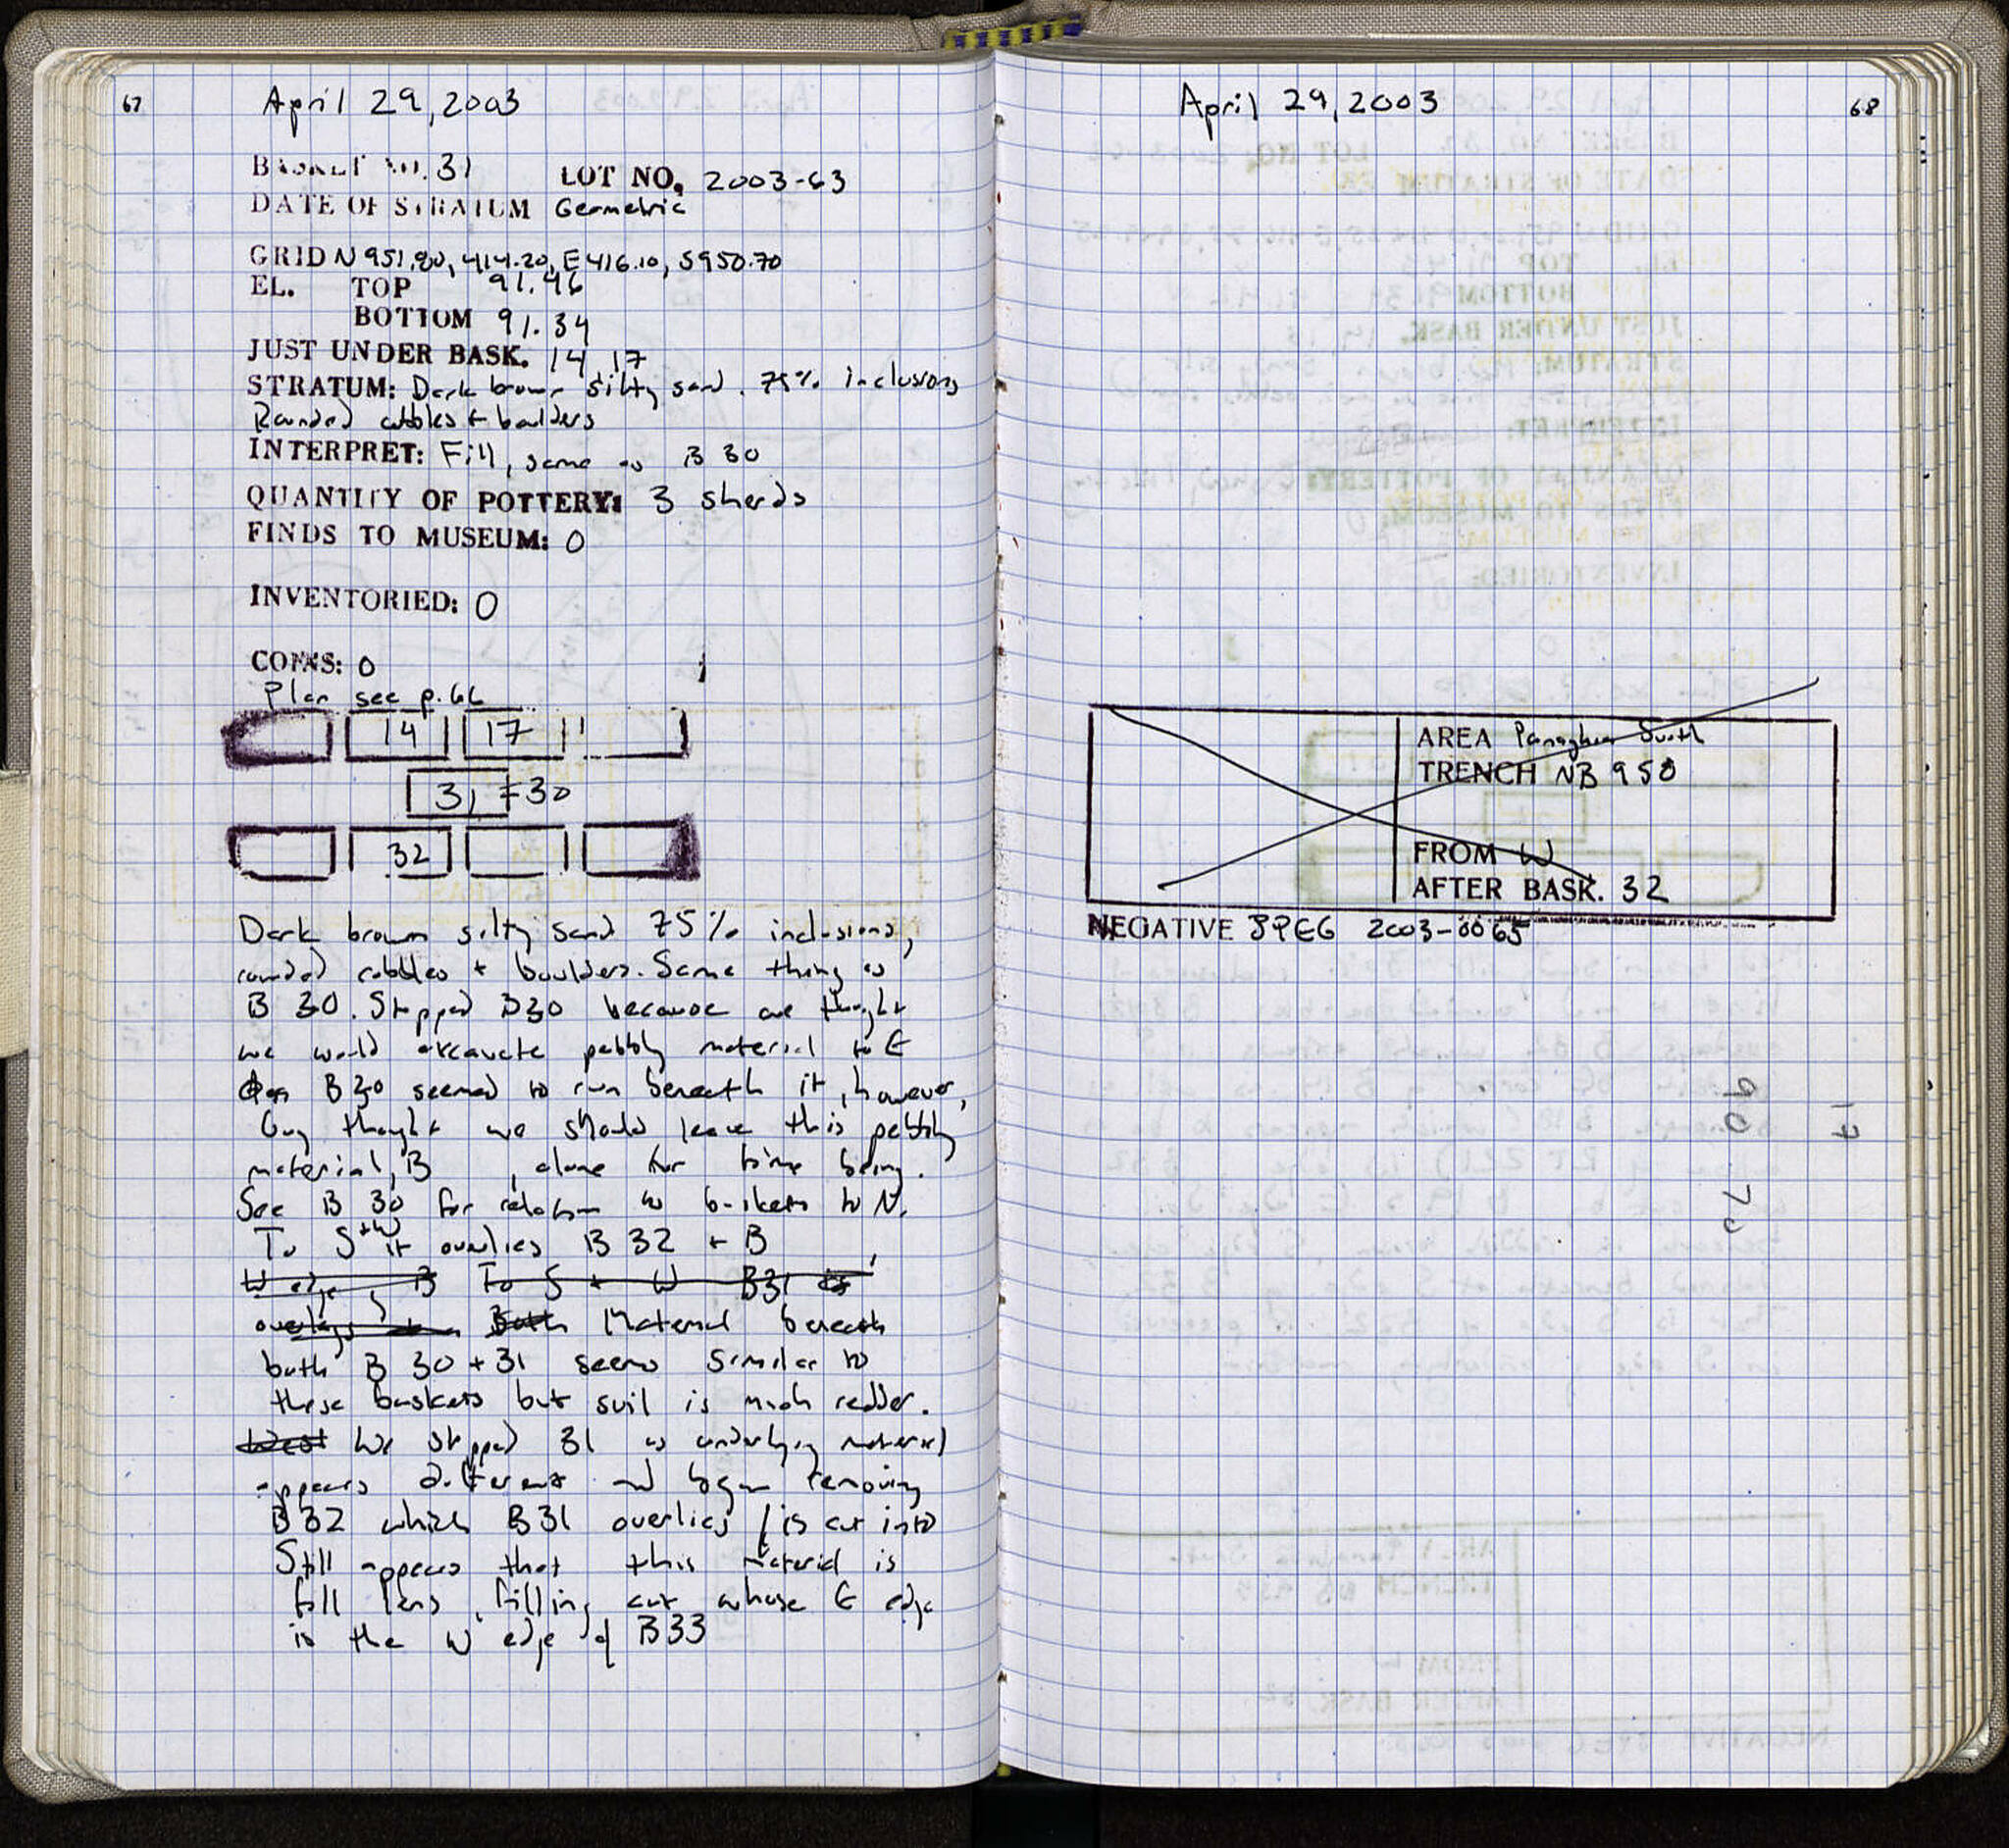 67
April 29, 2003
BASKET NO. 31 LOT NO. 2003-63
DATE OF STRATUM Geometric
GRID N 951.80, 414.20, E 416.10, S 950.70
EL. TOP 91.46
BOTTOM 91.34
JUST UNDER BASK. 14 17
STRATUM: Dark brown silty sand. 75% inclusions
Rounded cobbles + boulders
INTERPRET: Fill, same as B 30
QUANTITY OF POTTERY: 3 sherds
FINDS TO MUSEUM: 0
INVENTORIED: 0
COINS: 0
Plan see p. 66
14 17
31 = 30
32
Dark brown silty sand 75% inclusions,
rounded cobbles + boulders. Same thing as
B 30. Stopped B30 because we thought
we would excavate pebbly material to E
B30 seemed to run beneath it, however,
Guy thought we should leave this pebbly
material, B , alone for time being.
See B 30 for relation to baskets to N.
To S + W it overlies B 32 + B
W edge, B To S + W B31
overlays Both Material beneath
both B 30 + 31 seems similar to
these baskets but soil is much redder.
West We stopped 31 as underlying material
appears different and began removing
B32 which B31 overlies / is cut into
Still appears that this material is
fill lens, filling cut whose E edge
is the W edge of B33
April 29, 2003
68
AREA Panaghia South
TRENCH NB 958
FROM W
AFTER BASK. 32
NEGATIVE JPEG 2003-0065